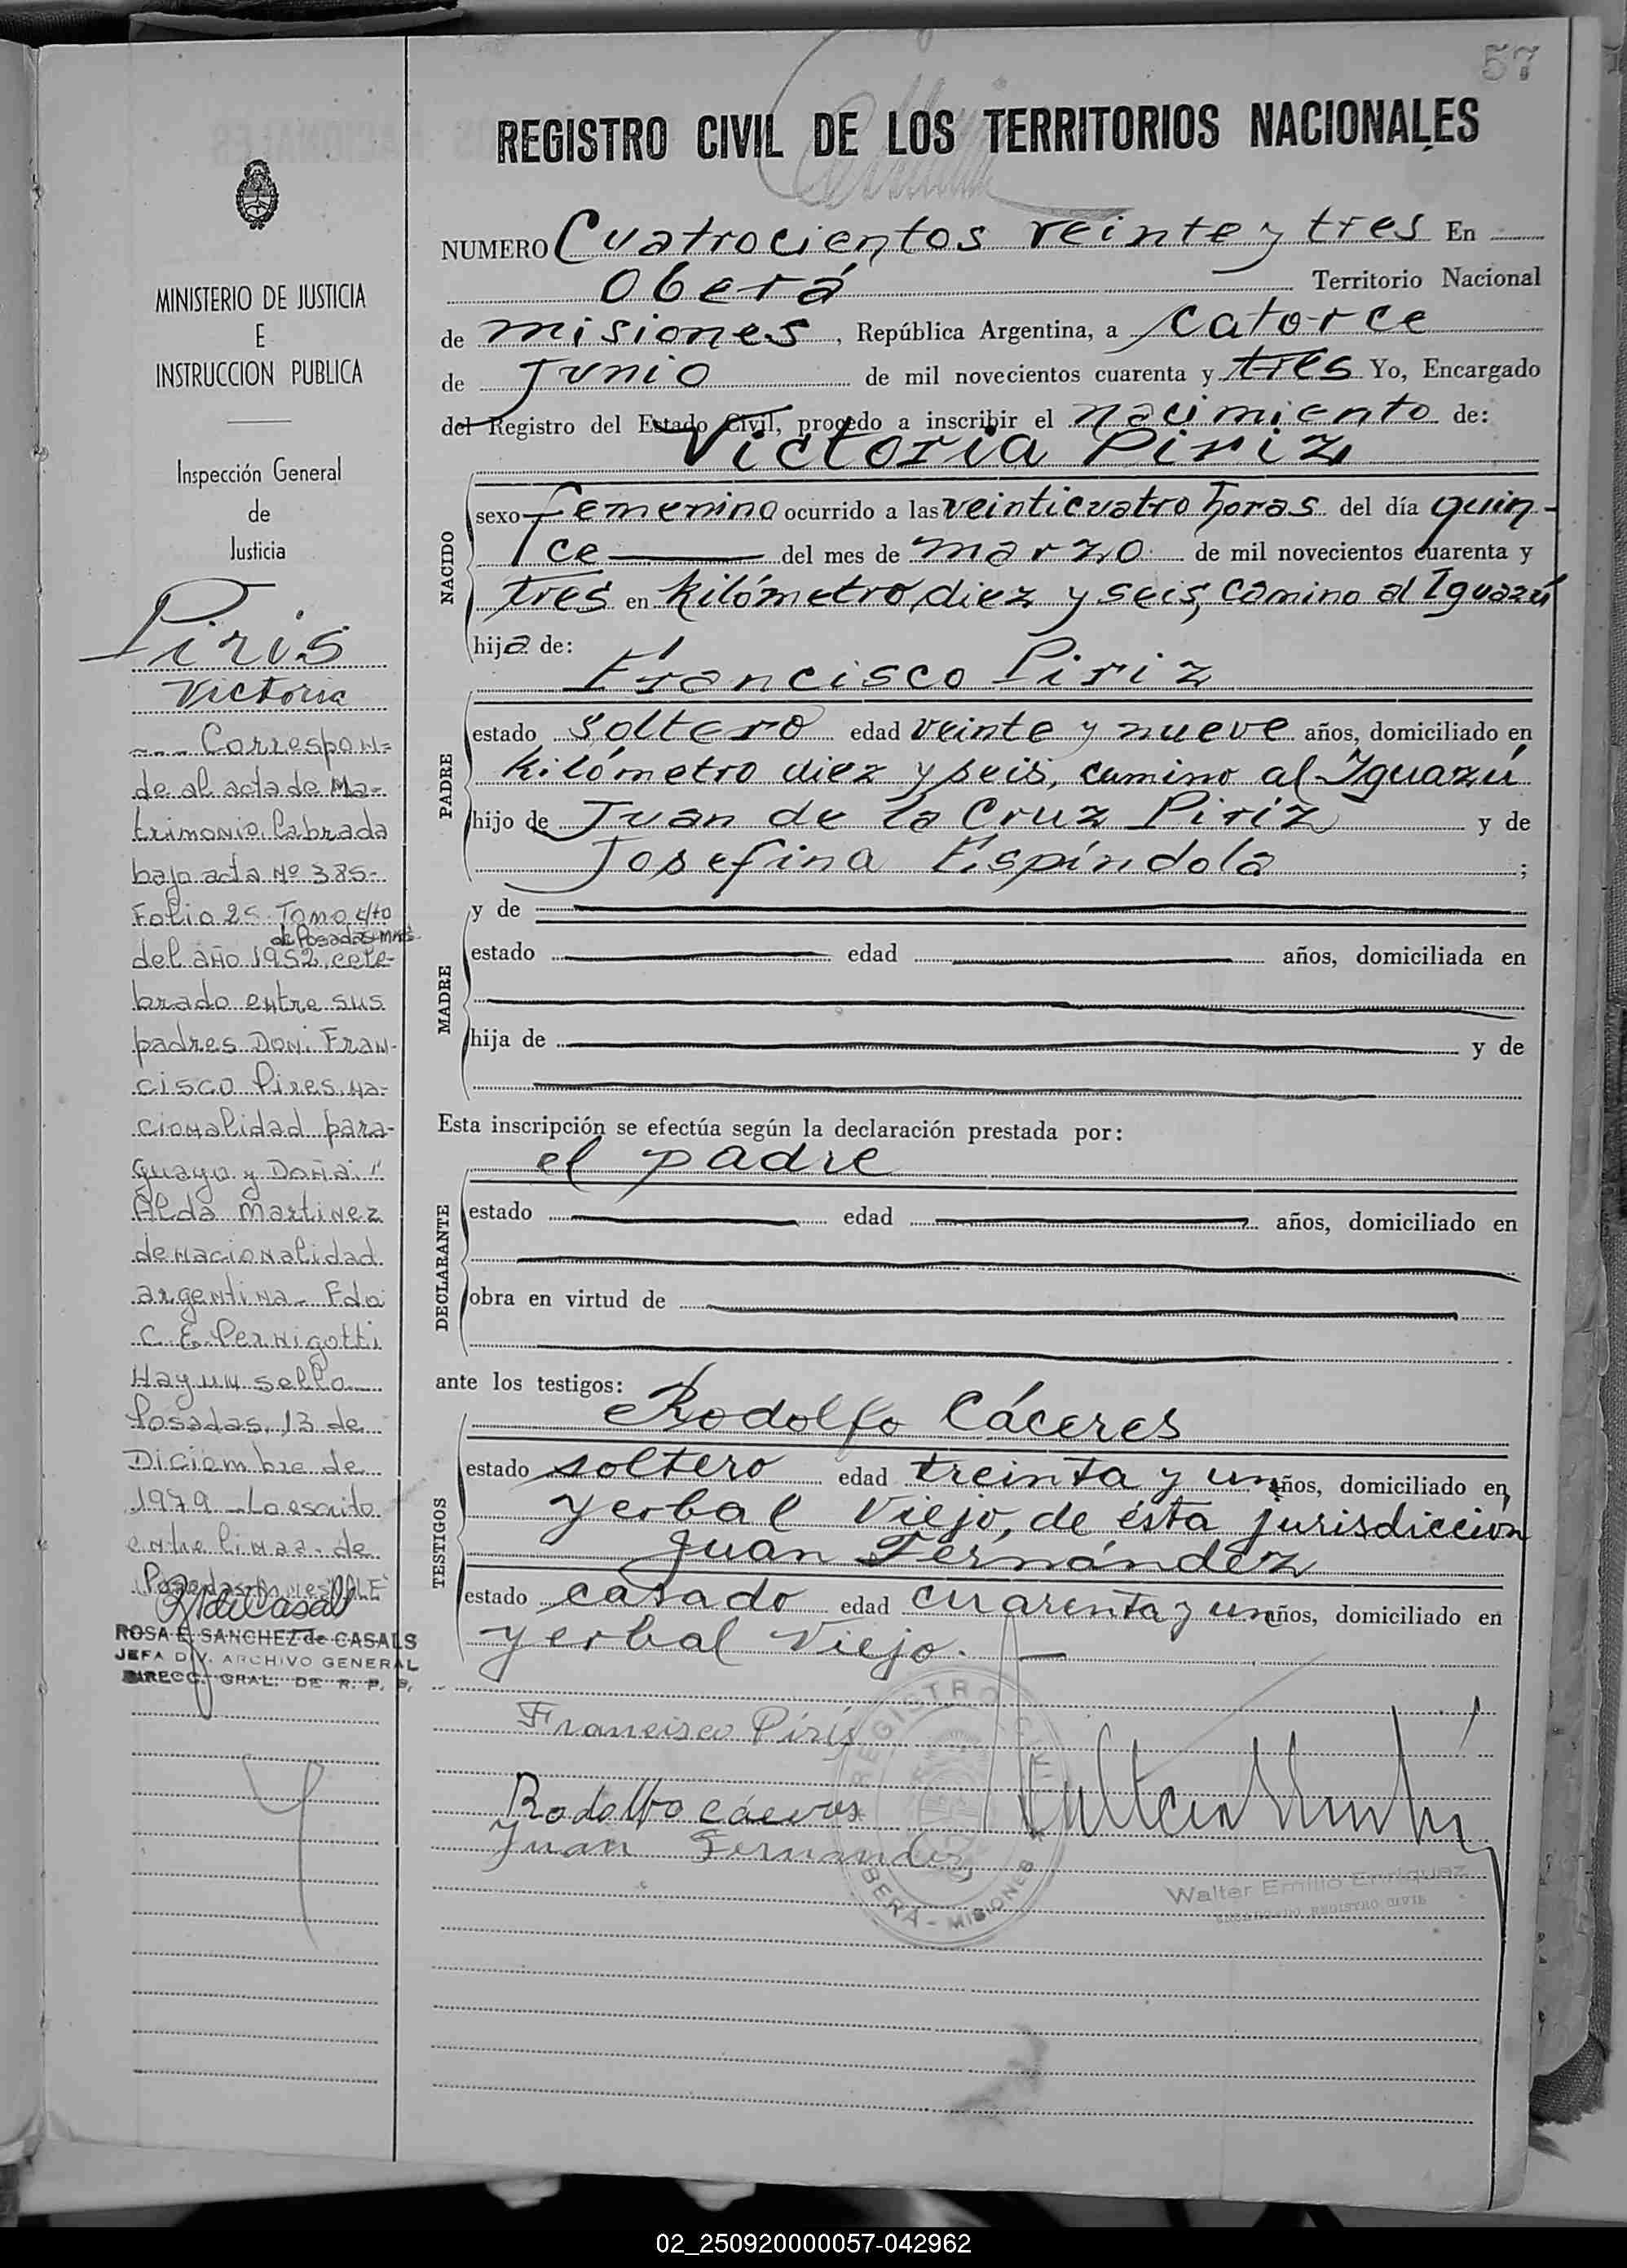 57
REGISTRO CIVIL DE LOS TERRITORIOS NACIONALES
NUMERO Cuatrocientos veinte y tres En
Oberá Territorio Nacional
de misiones, República Argentina, a catorce
de Junio de mil novecientos cuarenta y tres Yo, Encargado
del Registro del Estado Civil, procedo a inscribir el nacimiento de:
Victoria Piriz
NACIDO
sexo femenino ocurrido a las veinticuatro horas del día quin-
ce del mes de marzo de mil novecientos cuarenta y
tres en kilómetro diez y seis, camino al Iguazú
hija de:
Francisco Piriz
PADRE
estado soltero edad veinte y nueve años, domiciliado en
kilómetro diez y seis, camino al Iguazú
hijo de Juan de la Cruz Piriz y de
Josefina Espíndola ;
MADRE
y de
estado edad años, domiciliada en
hija de y de
Esta inscripción se efectúa según la declaración prestada por:
el padre
DECLARANTE
estado edad años, domiciliado en
obra en virtud de
ante los testigos:
Rodolfo Cáceres
TESTIGOS
estado soltero edad treinta y un años, domiciliado en
yerbal Viejo, de ésta jurisdiccion
Juan Fernández
estado casado edad cuarenta y un años, domiciliado en
yerbal Viejo.
Francisco Piris
Rodolfo cáceres
Juan Fernandez
REGISTRO CIVIL
OBERA - MISIONES
Walter Emilio Enriquez
ENCARGADO REGISTRO CIVIL
MINISTERIO DE JUSTICIA
E
INSTRUCCION PUBLICA
Inspección General
de
Justicia
Piris
Victoria
--- Correspon=
de al acta de Ma-
trimonio labrada
bajo acta Nº 385-
Folio 25 Tomo 4to
de Posadas-Mnes
del año 1952, cele-
brado entre sus
padres Don. Fran-
cisco Pires, na-
cionalidad para-
guayo y Doña "
Alda Martinez
de nacionalidad
argentina - Fdo
C. E. Pernigotti
Hay un sello
Posadas, 13 de
Diciembre de
1979 - Lo escrito
entre lineas - de
Posadas-Mnes VALE
ROSA E. SANCHEZ de CASALS
JEFA DIV. ARCHIVO GENERAL
DIRECC. GRAL. DE R. P. P.
02_250920000057-042962